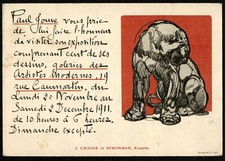 Paul Jouve vous prie
de lui faire l'honneur
de visiter son exposition
comprenant cent de ses
dessins, galeries des
Artistes Modernes, 19
rue Caumartin, du
Lundi 20 Novembre au
Samedi 2 Décembre 1911.
de 10 heures à 6 heures,
Dimanche excepté.
J. CHAINE et SIMONSON, Experts